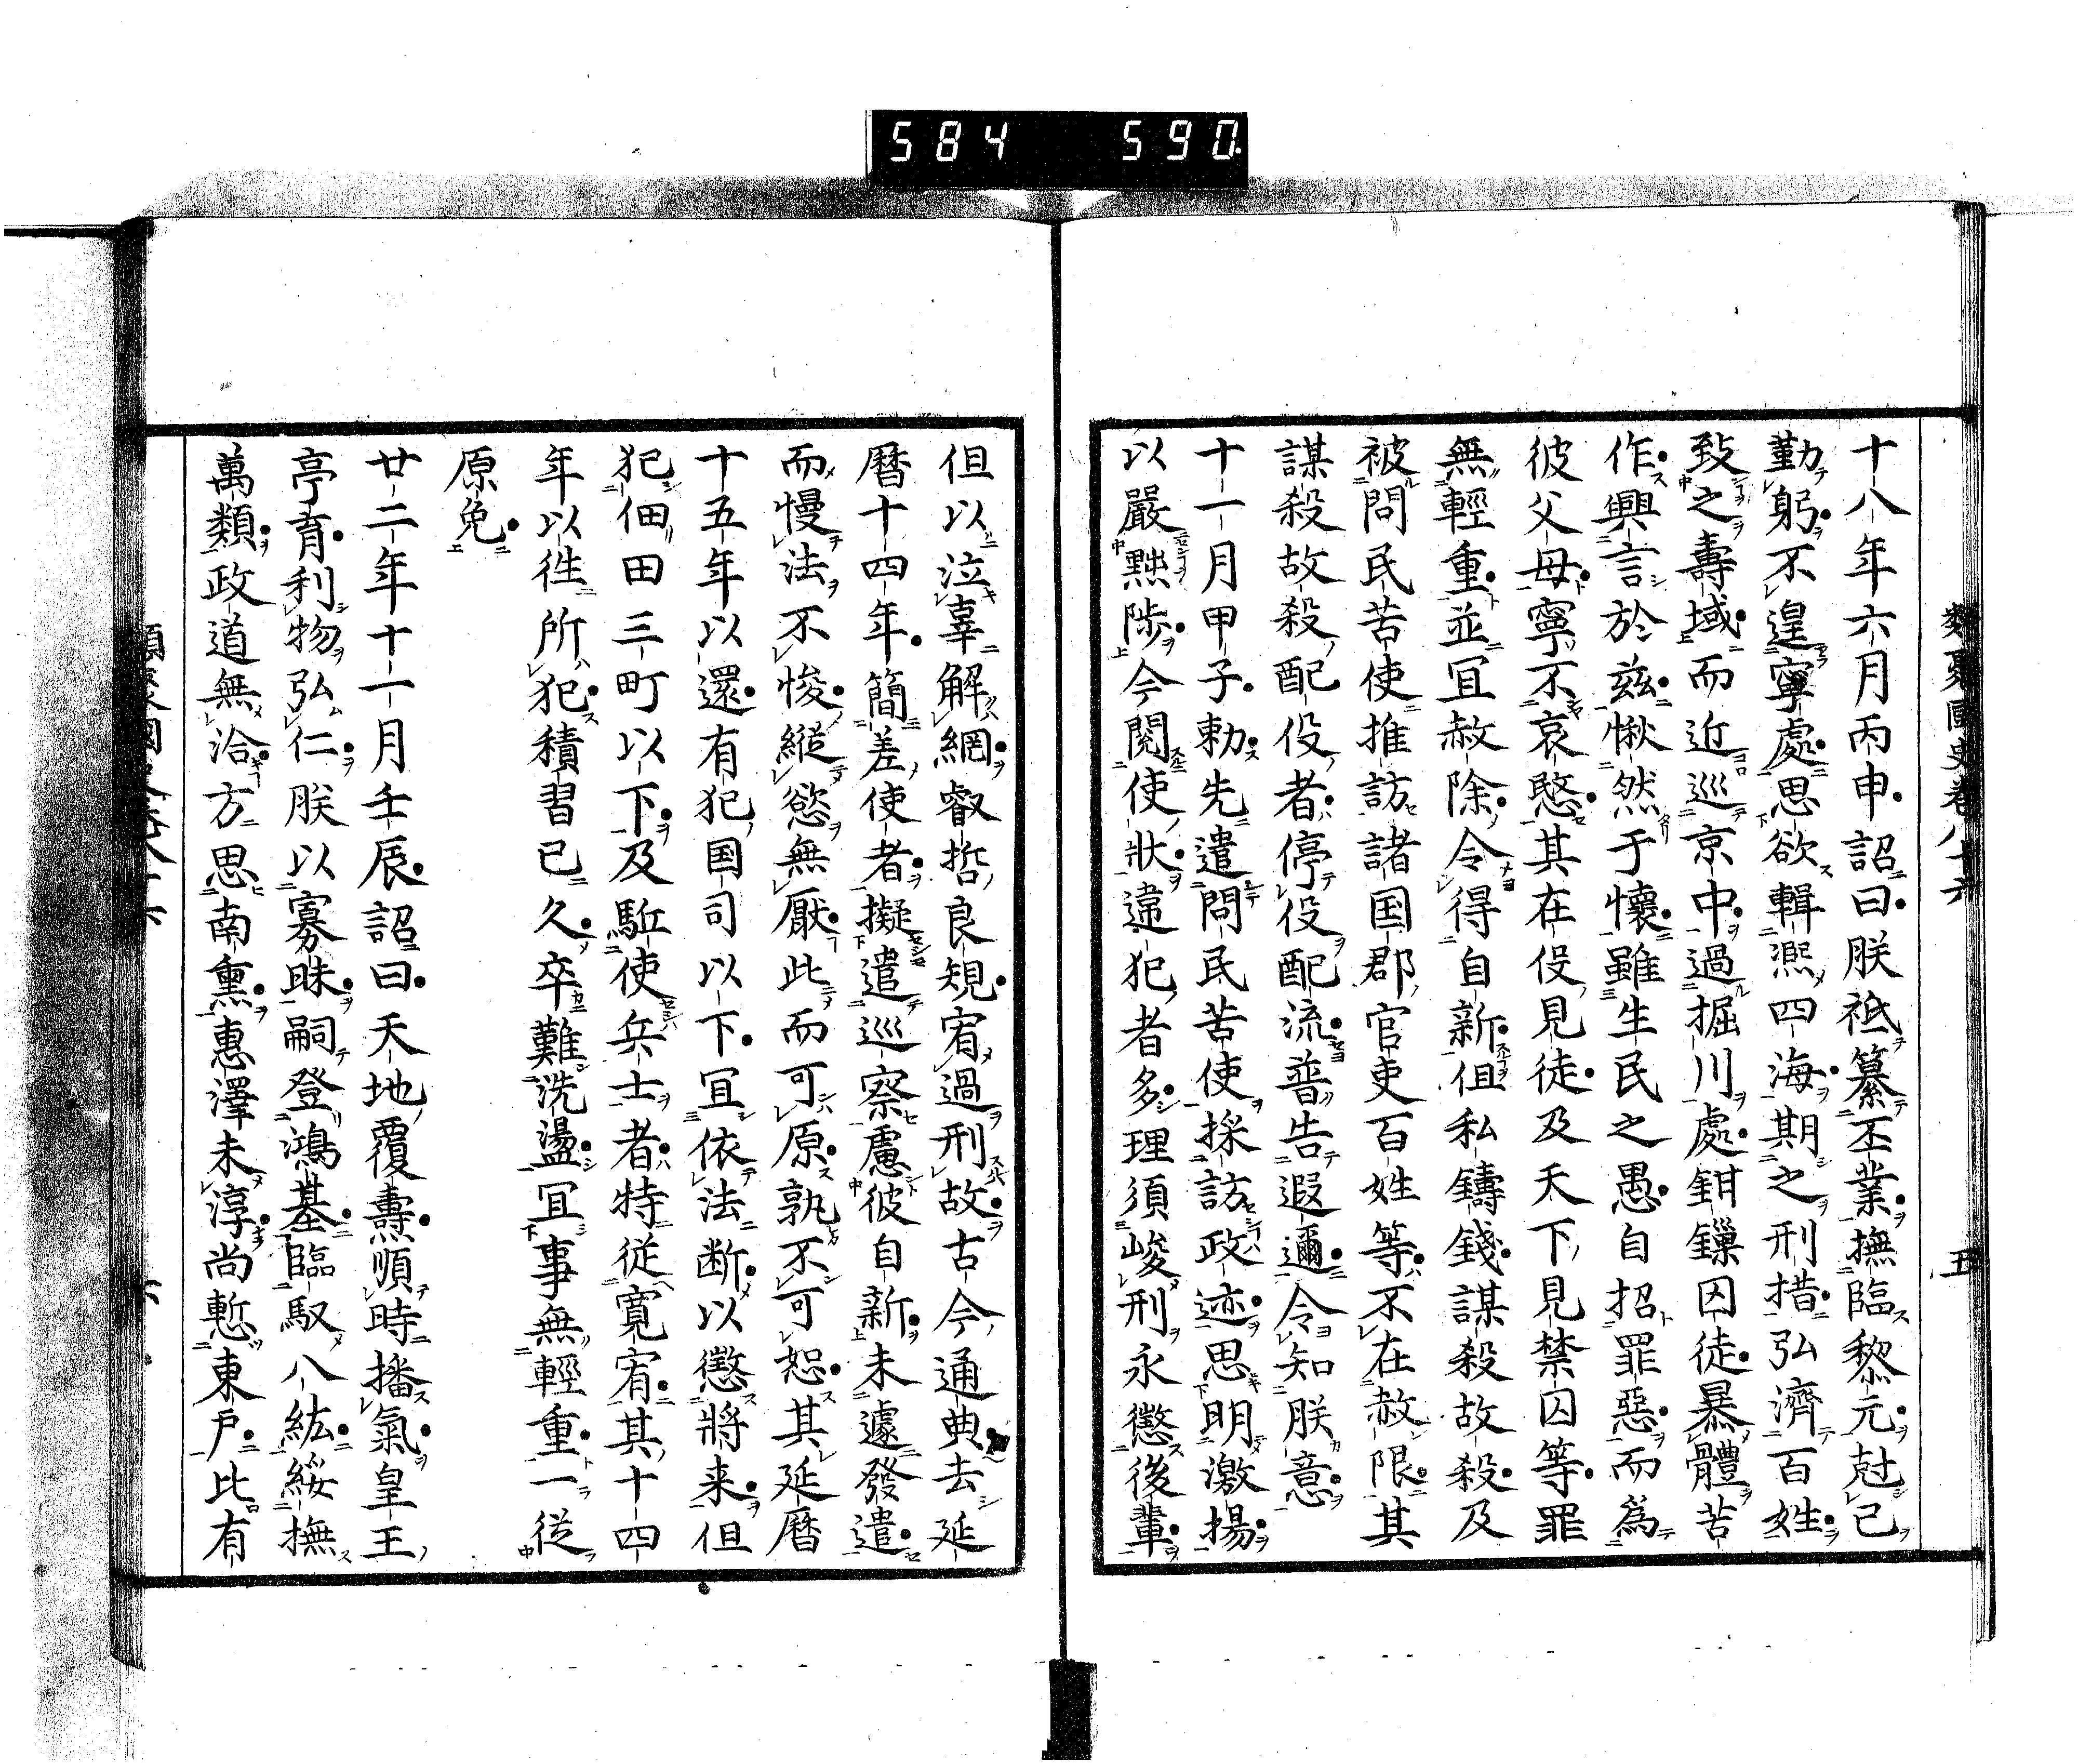 584 590
類聚國史卷八十六
五
十八年六月丙申詔曰朕祗纂丕業撫臨黎元尅己
勤躬不遑寧處思欲輯熈四海期之刑措弘濟百姓
致之壽域而近巡京中過掘川處鉗鏁囚徒暴體苦
作興言於兹愀然于懷雖生民之愚自招罪惡而為
彼父母寧不哀愍其在役見徒及天下見禁囚等罪
無輕重並冝赦除令得自新但私鑄錢謀殺故殺及
被問民苦使推訪諸国郡官吏百姓等不在赦限其
謀殺故殺配役者停役配流普告遐邇令知朕意
十一月甲子勅先遣問民苦使採訪政迹思明激揚
以嚴黜陟今閲使狀違犯者多理須峻刑永懲後輩
但以泣辜解網睿哲良規宥過刑故古今通典去延
曆十四年簡差使者擬遣巡察慮彼自新未遽發遣
而慢法不悛縱慾無厭此而可原孰不可恕其延曆
十五年以還有犯国司以下冝依法断以懲將来但
犯佃田三町以下及駈使兵士者特從寛宥其十四
年以徃所犯積習已久卒難洗盪冝事無輕重一從
原免
廿二年十一月壬辰詔曰天地覆燾順時播氣皇王
亭育利物弘仁朕以寡昧嗣登鴻基臨馭八紘綏撫
萬類政道無洽方思南熏惠澤未淳尚慙東戸比有